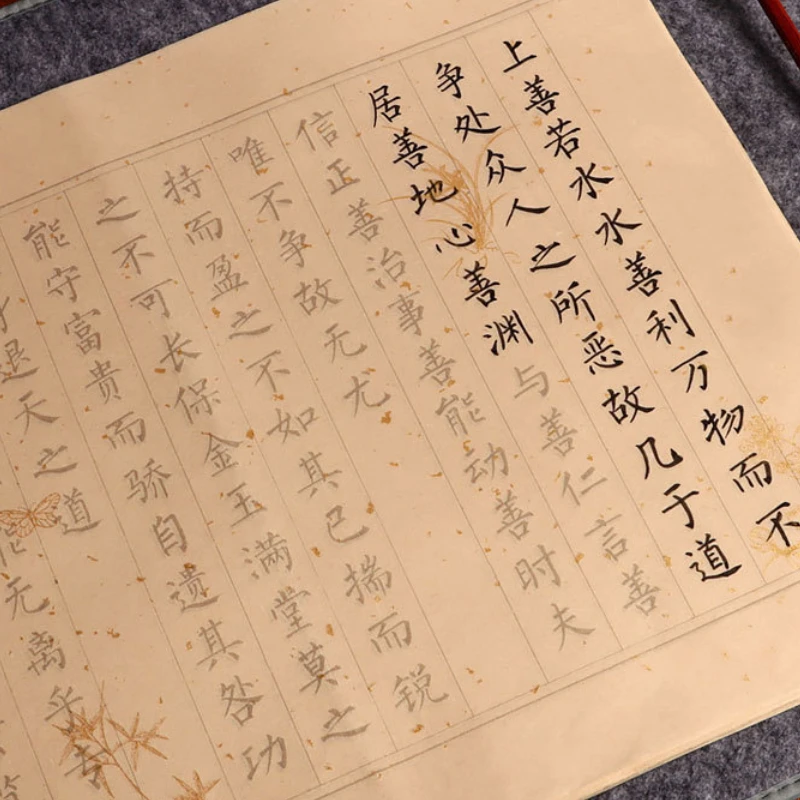 上善若水水善利万物而不
争处众人之所恶故几于道
居善地心善渊与善仁言善
信正善治事善能动善时夫
唯不争故无尤
持而盈之不如其已揣而锐
之不可长保金玉满堂莫之
能守富贵而骄自遗其咎功
退天之道
能无离乎专